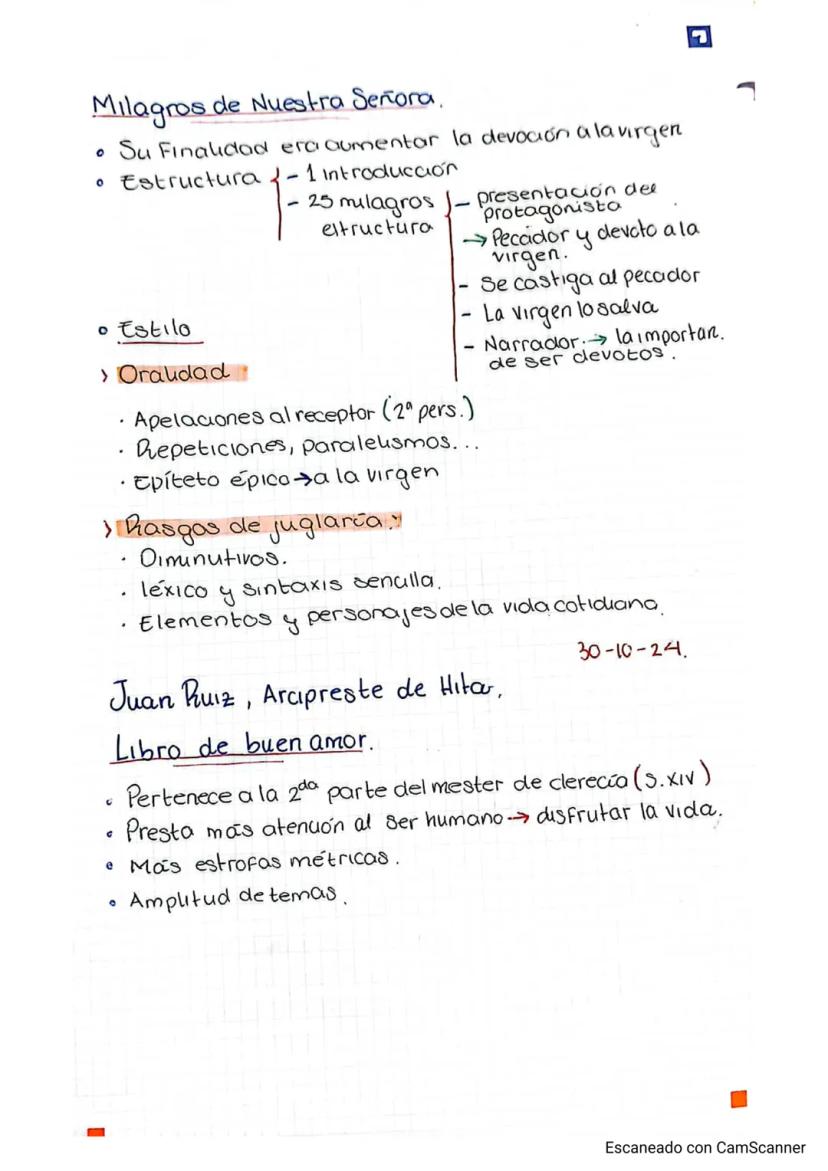 Milagros de Nuestra Señora.
• Su Finalidad era aumentar la devoción a la virgen
• Estructura - 1 introducción
- 25 milagros
estructura
- presentación del
protagonista
→ Pecador y devoto a la
virgen.
- Se castiga al pecador
- La virgen lo salva
- Narrador → la importan.
de ser devotos.
• Estilo
> Oralidad
· Apelaciones al receptor (2ª pers.)
· Repeticiones, paralelismos...
· Epíteto épico → a la virgen
> Rasgos de juglaría:
· Diminutivos.
· léxico y sintaxis sencilla.
· Elementos y personajes de la vida cotidiana.
30-10-24.
Juan Ruiz, Arcipreste de Hita.
Libro de buen amor.
• Pertenece a la 2da parte del mester de clerecía (S.XIV)
• Presta más atención al ser humano → disfrutar la vida.
• Más estrofas métricas.
• Amplitud de temas.
Escaneado con CamScanner